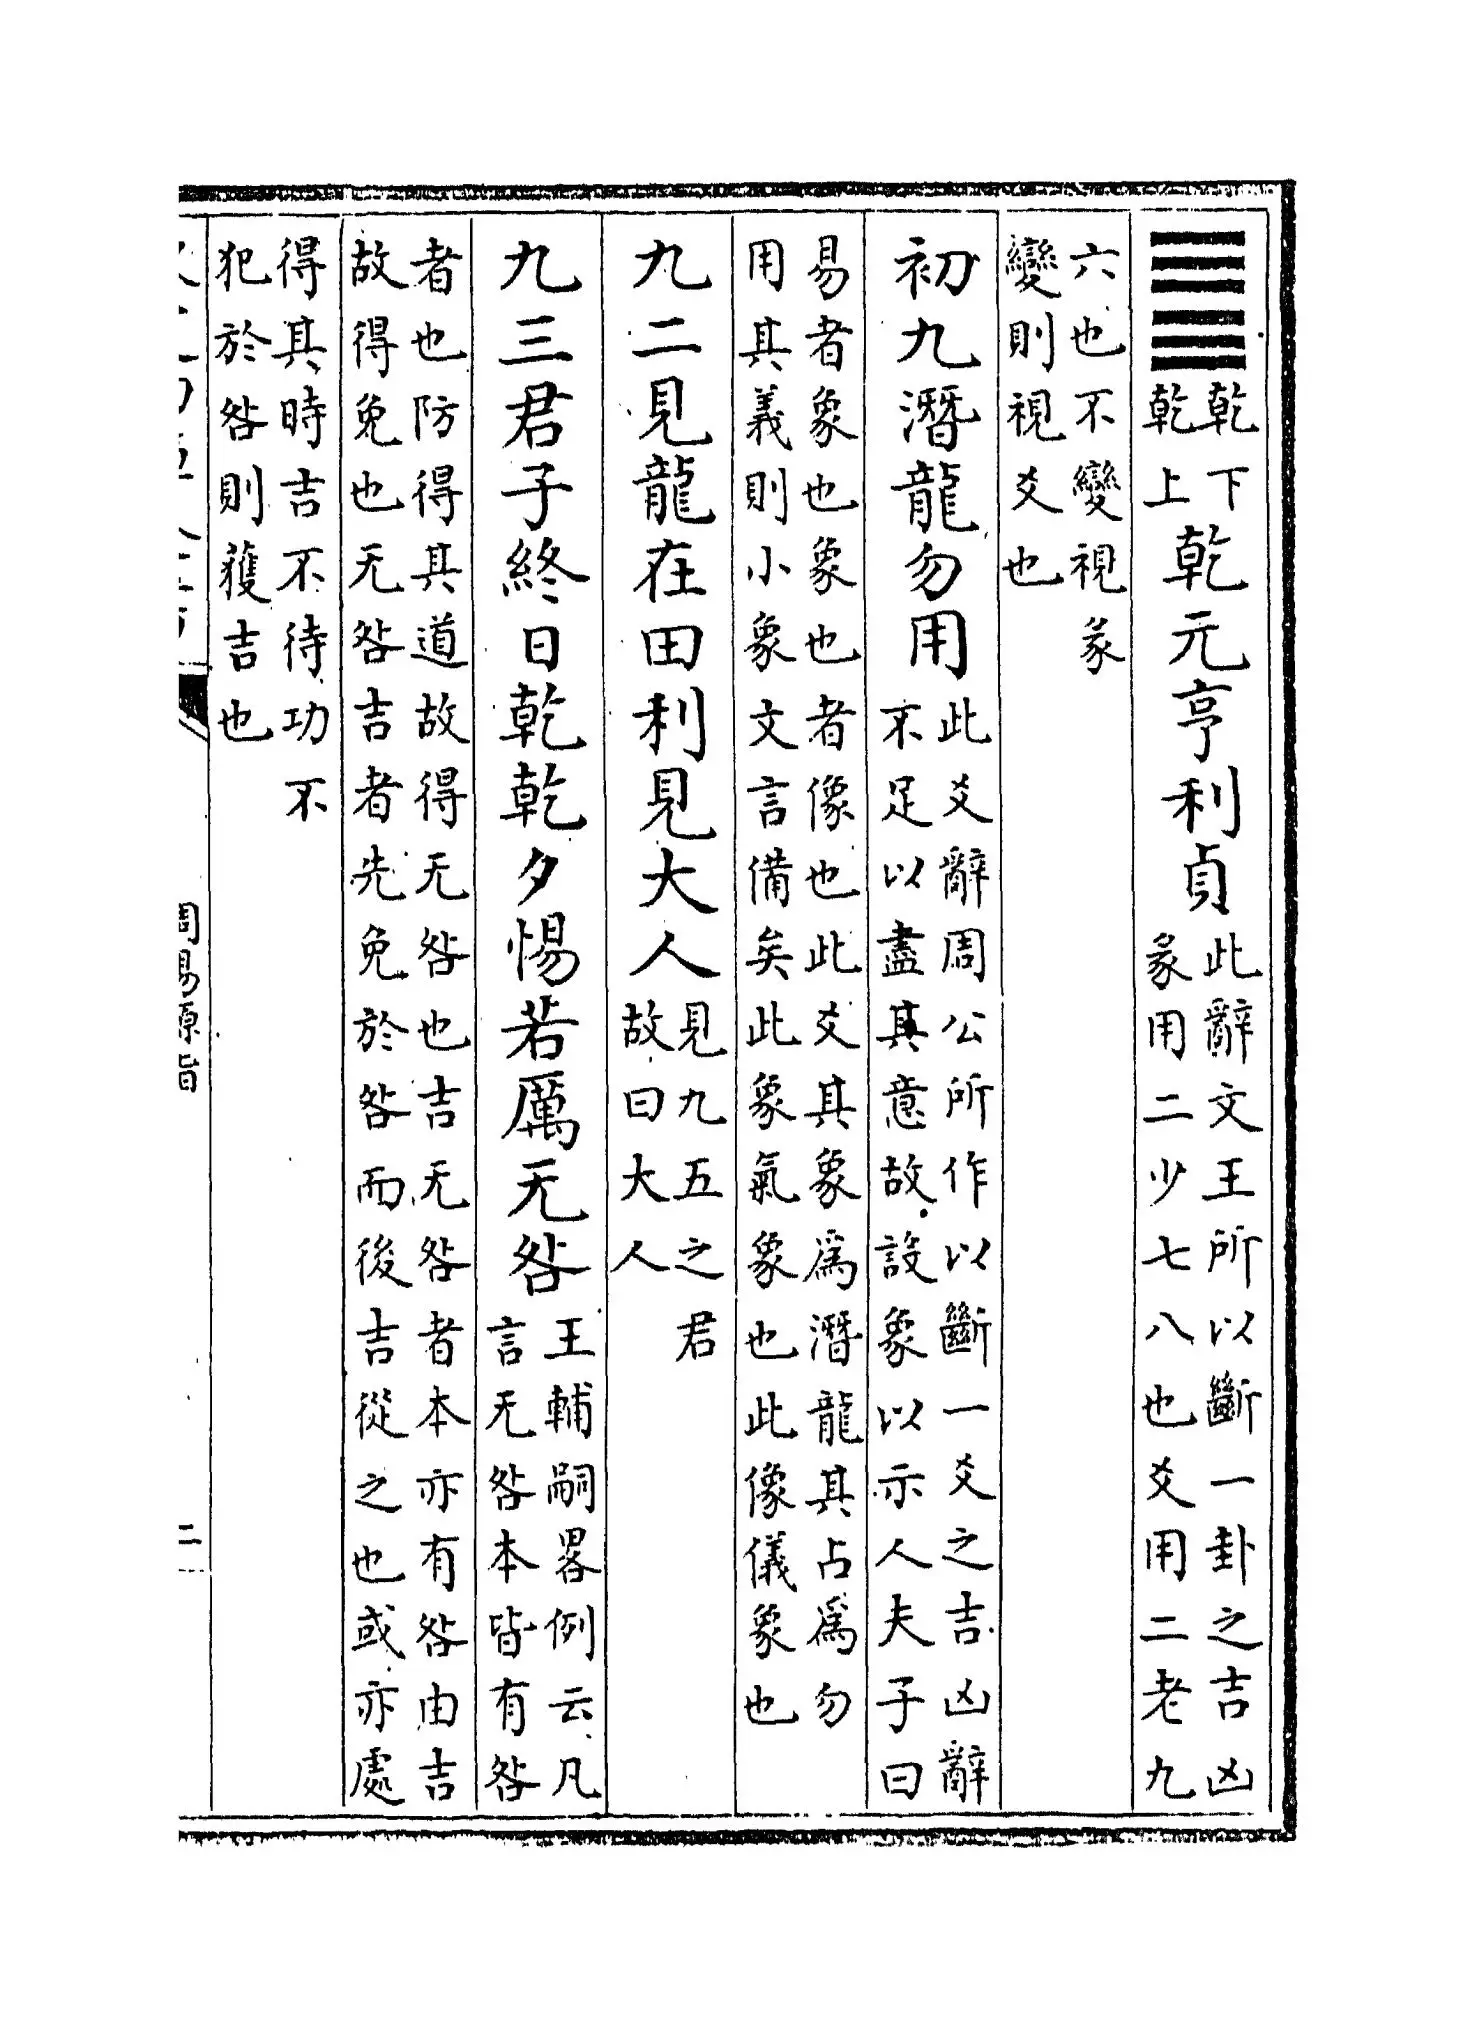 ䷀乾下
乾上乾元亨利貞此辭文王所以斷一卦之吉凶
彖用二少七八也爻用二老九
六也不變視彖
變則視爻也
初九潛龍勿用此爻辭周公所作以斷一爻之吉凶辭
不足以盡其意故設象以示人夫子曰
易者象也象也者像也此爻其象爲潛龍其占爲勿
用其義則小象文言備矣此象氣象也此像儀象也
九二見龍在田利見大人見九五之君
故曰大人
九三君子終日乾乾夕惕若厲无咎王輔嗣畧例云凡
言无咎本皆有咎
者也防得其道故得无咎也吉无咎者本亦有咎由吉
故得免也无咎吉者先免於咎而後吉從之也或亦處
得其時吉不待功不
犯於咎則獲吉也
周易原旨
二